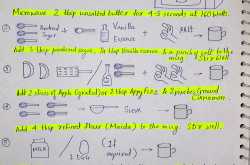 Microwave 2 tbsp unsalted butter for 45 seconds at 160 watts.
② Powdered Sugar + Vanilla Essence + SALT →
Add 3 tbsp powdered sugar, Vanilla Essence & a punch of salt to the mug. Stir well.
③
Add 2 slices of Apple (grated) or 3 tbsp Appy Fizz & 2 pinches Ground Cinnamon.
④ → Sieve →
Add 4 tbsp refined flour (Maida) to the mug. Stir well.
⑤ MILK / 1 EGG (If required) →